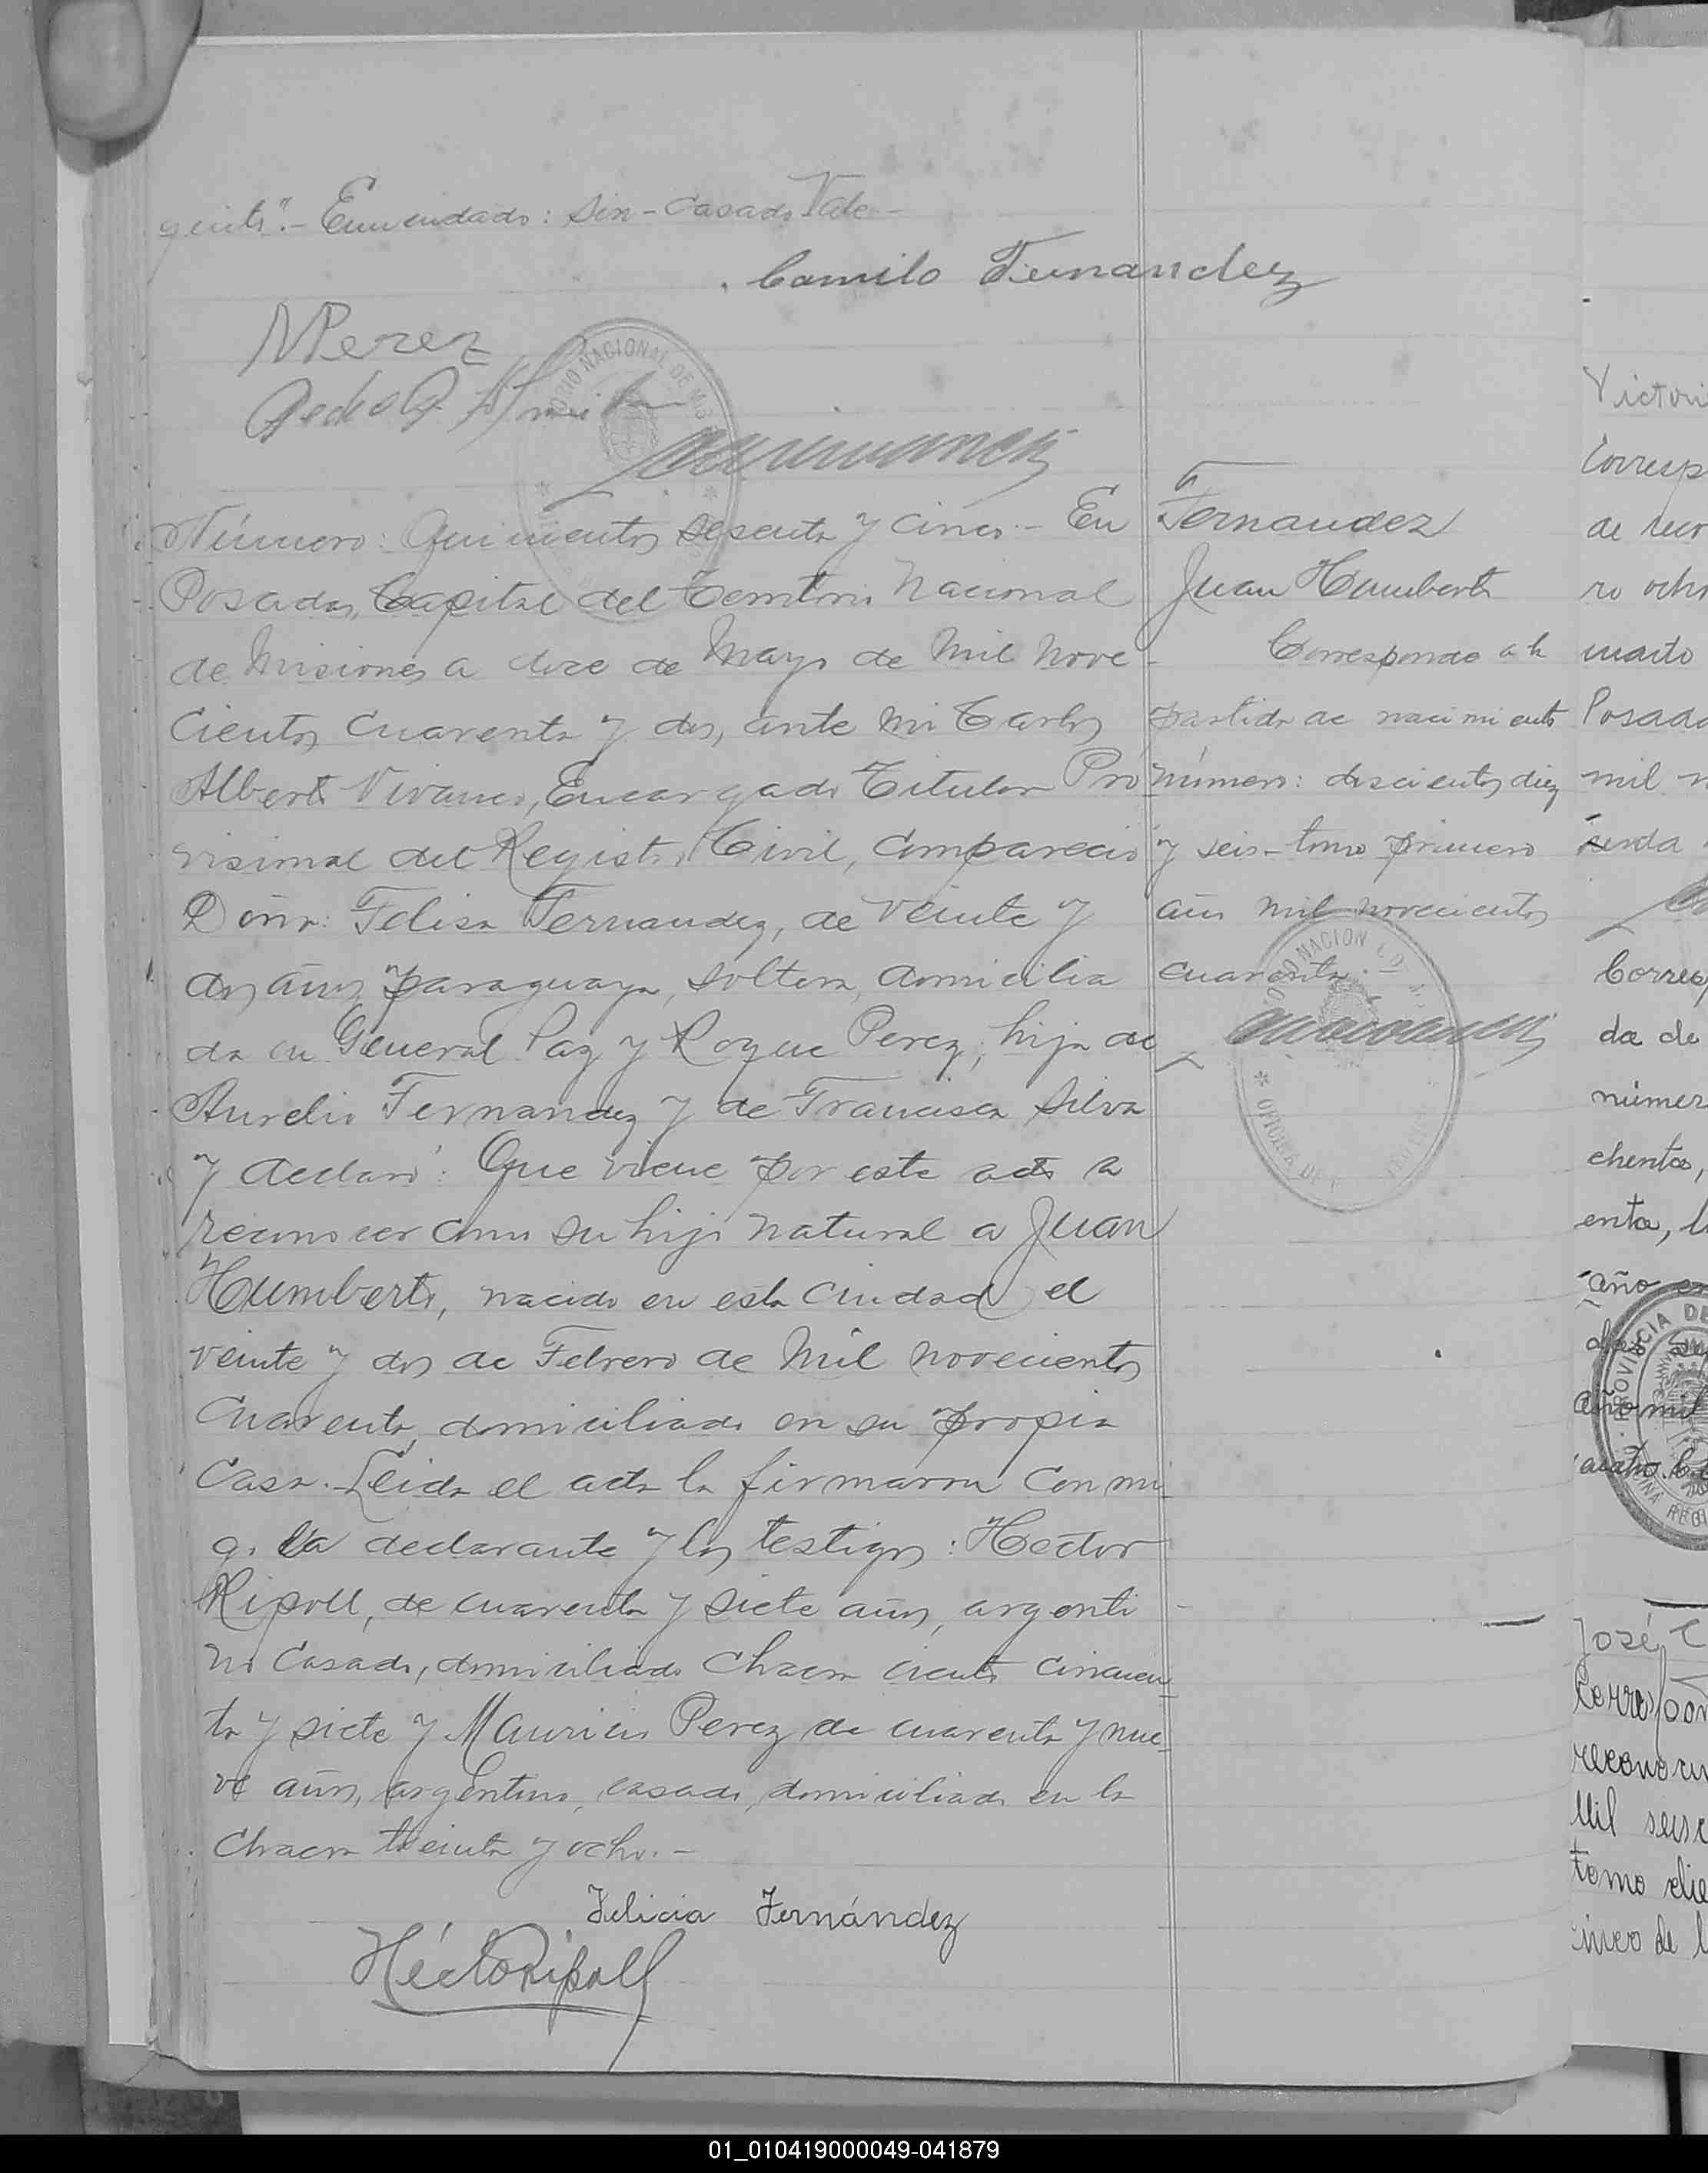 gente".- Enmendado: sin - casado Vale -
Camilo Fernandez
MPerez
Pedro G.
Número: Quinientos sesenta y cinco.- En
Posadas, Capital del Territorio Nacional
de Misiones a doce de Mayo de Mil Nove
cientos cuarenta y dos, ante mi Carlos
Alberto Vivanco, Encargado Titular Pro
visional del Registro Civil, compareció
Doña: Felisa Fernandez, de veinte y
dos años, paraguaya, soltera, domicilia
da en General Paz y Roque Perez, hija de
Aurelio Fernandez y de Francisca Silva
y declaró: Que viene por este acto a
reconocer como su hijo natural a Juan
Humberto, nacido en esta ciudad el
veinte y dos de Febrero de Mil novecientos
cuarenta, domiciliado en su propia
casa. Leida el acta la firmaron conmi
go la declarante y los testigos: Hector
Ripoll, de cuarenta y siete años, argenti
no casado, domiciliado Chacra ciento cincuen
ta y siete y Mauricio Perez de cuarenta y nue
ve años, argentino, casado, domiciliado en la
Chacra treinta y ocho.-
Felicia Fernández
Héctor Ripoll
Fernandez
Juan Humberto
Corresponde a la
partida de nacimiento
número: doscientos diez
y seis - tomo primero
año mil novecientos
cuarenta.-
Victori
Corresp
de reco
ro ocho
Posada
mil n
Corres
da de
númer
chenta,
enta, l
año
año mil
cuatro
José C
Correspon
reconoci
Mil seisc
tomo die
cinco de l
01_010419000049-041879